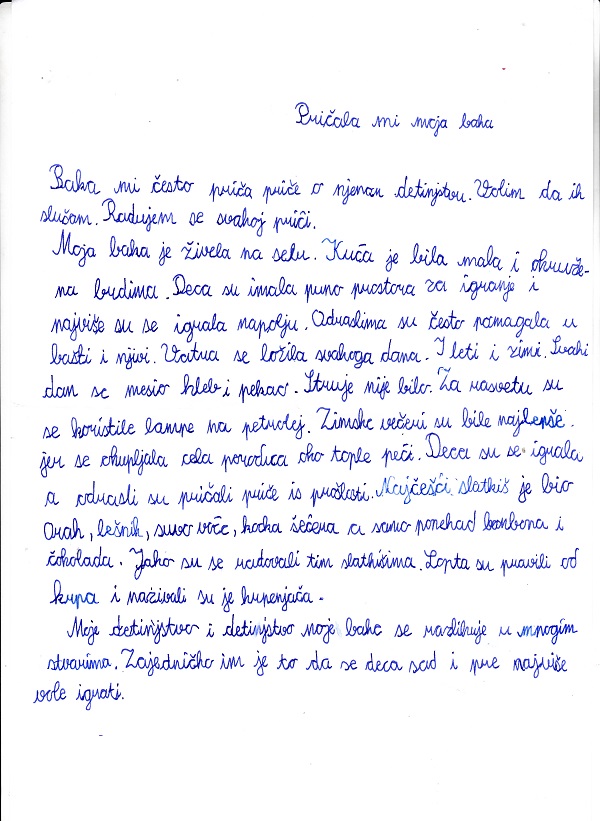 Pričala mi moja baka
Baka mi često priča priče o njenan detinjstvu. Volim da ih
slušam. Radujem se svakoj priči.
Moja baka je živela na selu. Kuća je bila mala i okruže-
na brdima. Deca su imala puno prostora za igranje i
najviše su se igrala napolju. Odraslima su često pomagala u
bašti i njivi. Vatra se ložila svakoga dana. I leti i zimi. Svaki
dan se mesio hleb i pekao. Struje nije bilo. Za rasvetu su
se koristile lampe na petrolej. Zimske večeri su bile najlepše
jer se okupljala cela porodica oko tople peći. Deca su se igrala
a odrasli su pričali priče is prošlosti. Najčešći slatkiš je bio
orah, lešnik, suvo voće, kocka šećera a samo ponekad bombona i
čokolada. Jako su se radovali tim slatkišima. Lopta su pravili od
krpa i nazivali su je krpenjača.
Moje detinjstvo i detinjstvo moje bake se razlikuje u mnogim
stvarima. Zajedničko im je to da se deca sad i pre najviše
vole igrati.